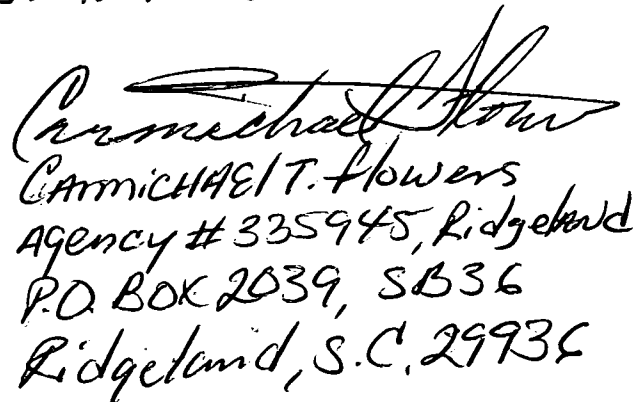 Carmichael Flowers
CArmiCHAEl T. flowers
Agency # 335945, Ridgeland
P.O. BOX 2039, SB36
Ridgeland, S.C. 29936